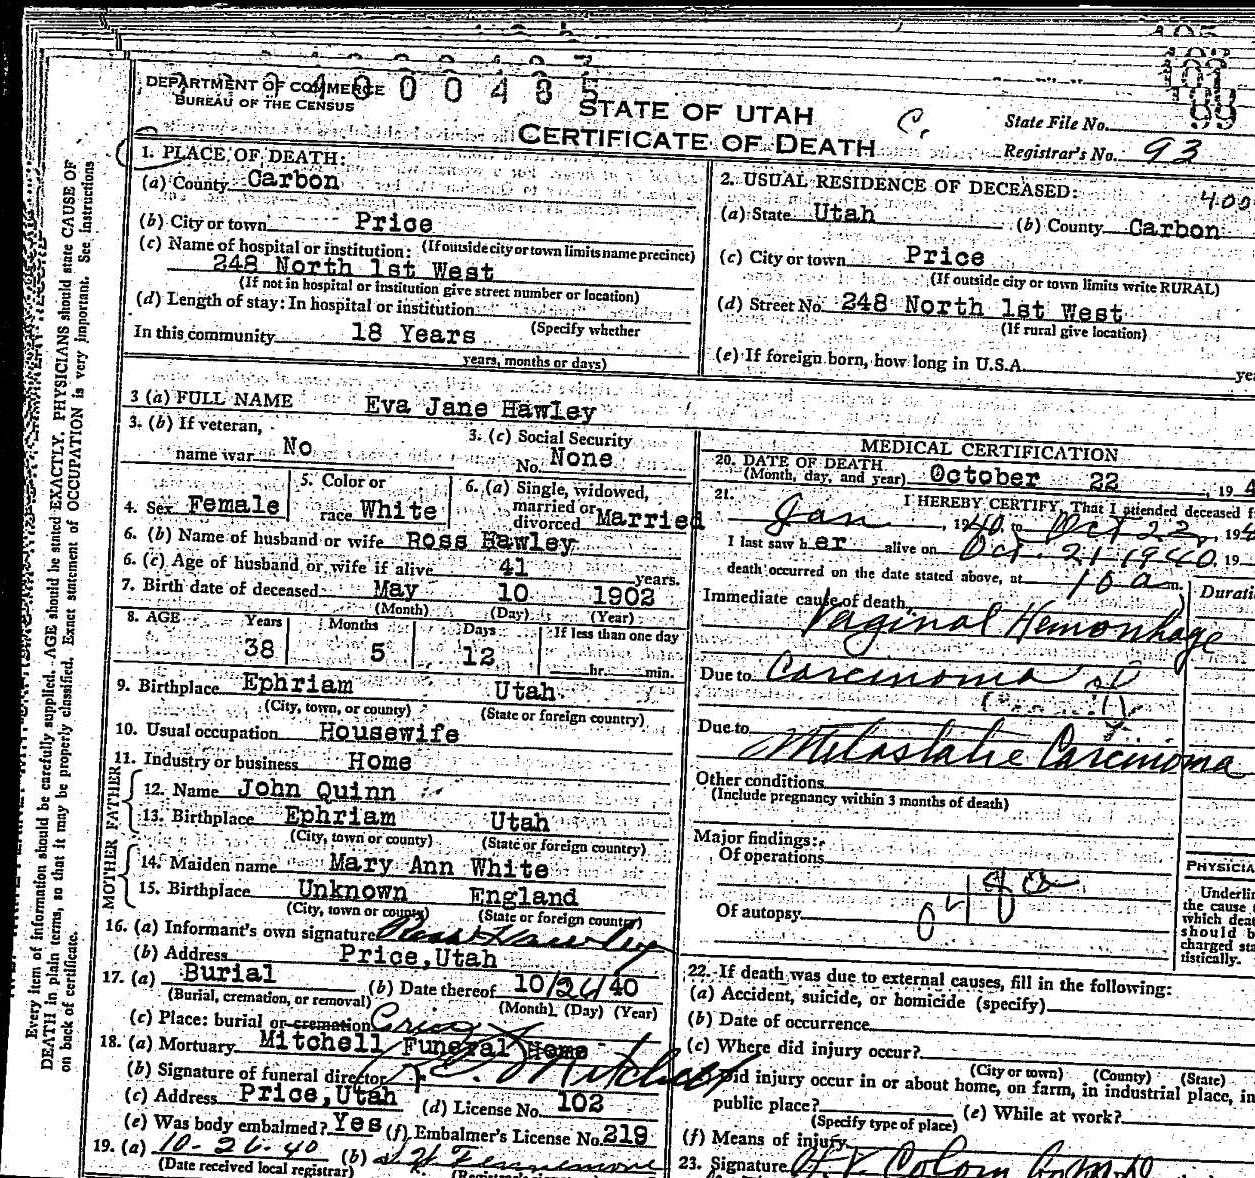 DEPARTMENT OF COMMERCE
BUREAU OF THE CENSUS
STATE OF UTAH
CERTIFICATE OF DEATH
C.
State File No.
Registrar's No. 93
1. PLACE OF DEATH:
(a) County Carbon
(b) City or town Price
(If outside city or town limits name precinct)
(c) Name of hospital or institution:
248 North 1st West
(If not in hospital or institution give street number or location)
(d) Length of stay: In hospital or institution
(Specify whether
In this community 18 Years
years, months or days)
2. USUAL RESIDENCE OF DECEASED:
(a) State Utah (b) County Carbon
(c) City or town Price
(If outside city or town limits write RURAL)
(d) Street No. 248 North 1st West
(If rural give location)
(e) If foreign born, how long in U.S.A.
3 (a) FULL NAME Eva Jane Hawley
3. (b) If veteran,
name war No
3. (c) Social Security
No. None
4. Sex Female
5. Color or
race White
6. (a) Single, widowed,
married or
divorced Married
6. (b) Name of husband or wife Ross Hawley
6. (c) Age of husband or wife if alive 41 years.
7. Birth date of deceased May 10 1902
(Month) (Day) (Year)
8. AGE Years Months Days If less than one day
38 5 12 hr. min.
9. Birthplace Ephriam Utah
(City, town, or county) (State or foreign country)
10. Usual occupation Housewife
11. Industry or business Home
FATHER
12. Name John Quinn
13. Birthplace Ephriam Utah
(City, town or county) (State or foreign country)
MOTHER
14. Maiden name Mary Ann White
15. Birthplace Unknown England
(City, town or county) (State or foreign country)
16. (a) Informant's own signature Ross Hawley
(b) Address Price,Utah
17. (a) Burial (b) Date thereof 10/24/40
(Burial, cremation, or removal) (Month) (Day) (Year)
(c) Place: burial or cremation
18. (a) Mortuary Mitchell Funeral Home
(b) Signature of funeral director Mitchell
(c) Address Price,Utah (d) License No. 102
(e) Was body embalmed? Yes (f) Embalmer's License No. 219
19. (a) 10-26-40 (b)
(Date received local registrar)
MEDICAL CERTIFICATION
20. DATE OF DEATH
(Month, day, and year) October 22, 19
21. I HEREBY CERTIFY, That I attended deceased
Jan, 1940, to Oct 22, 19
I last saw her alive on Oct. 21 1940, 19
death occurred on the date stated above, at 10 a m.
Immediate cause of death
Vaginal Hemorrhage
Due to Carcinoma of
Due to
Metastatic Carcinoma
Other conditions
(Include pregnancy within 3 months of death)
Major findings:
Of operations
Of autopsy
048a
Underli
the cause
which dea
should b
charged sta
tistically.
22. If death was due to external causes, fill in the following:
(a) Accident, suicide, or homicide (specify)
(b) Date of occurrence
(c) Where did injury occur?
(City or town) (County) (State)
Did injury occur in or about home, on farm, in industrial place, in
public place? (e) While at work?
(Specify type of place)
(f) Means of injury
23. Signature
Every item of information should be carefully supplied. AGE should be stated EXACTLY. PHYSICIANS should state CAUSE OF
DEATH in plain terms, so that it may be properly classified. Exact statement of OCCUPATION is very important. See instructions
on back of certificate.